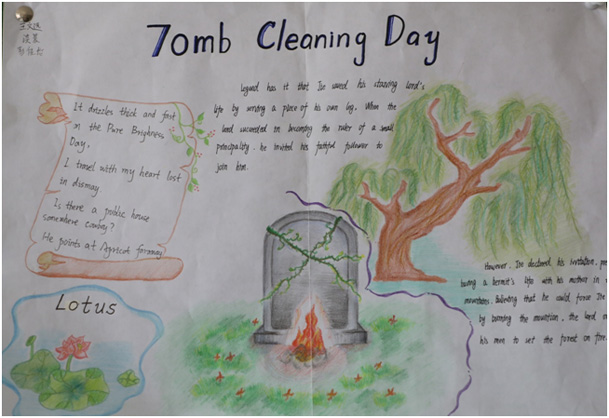 Tomb Cleaning Day
It drizzles thick and fast
on the Pure Brightness
Day,
I travel with my heart lost
in dismay.
Is there a public house
somewhere cowboy?
He points at Apricot
Legend has it that Jie saved his starving lord's
life by serving a piece of his own leg. When the
lord succeeded in becoming the ruler of a small
principality, he invited his faithful follower to
join him.
However, Jie declined his invitation,
a hermit's life with his mother in
mountains. Believing that he could force Jie
by burning the mountain, the lord
his men to set the forest on fire.
Lotus